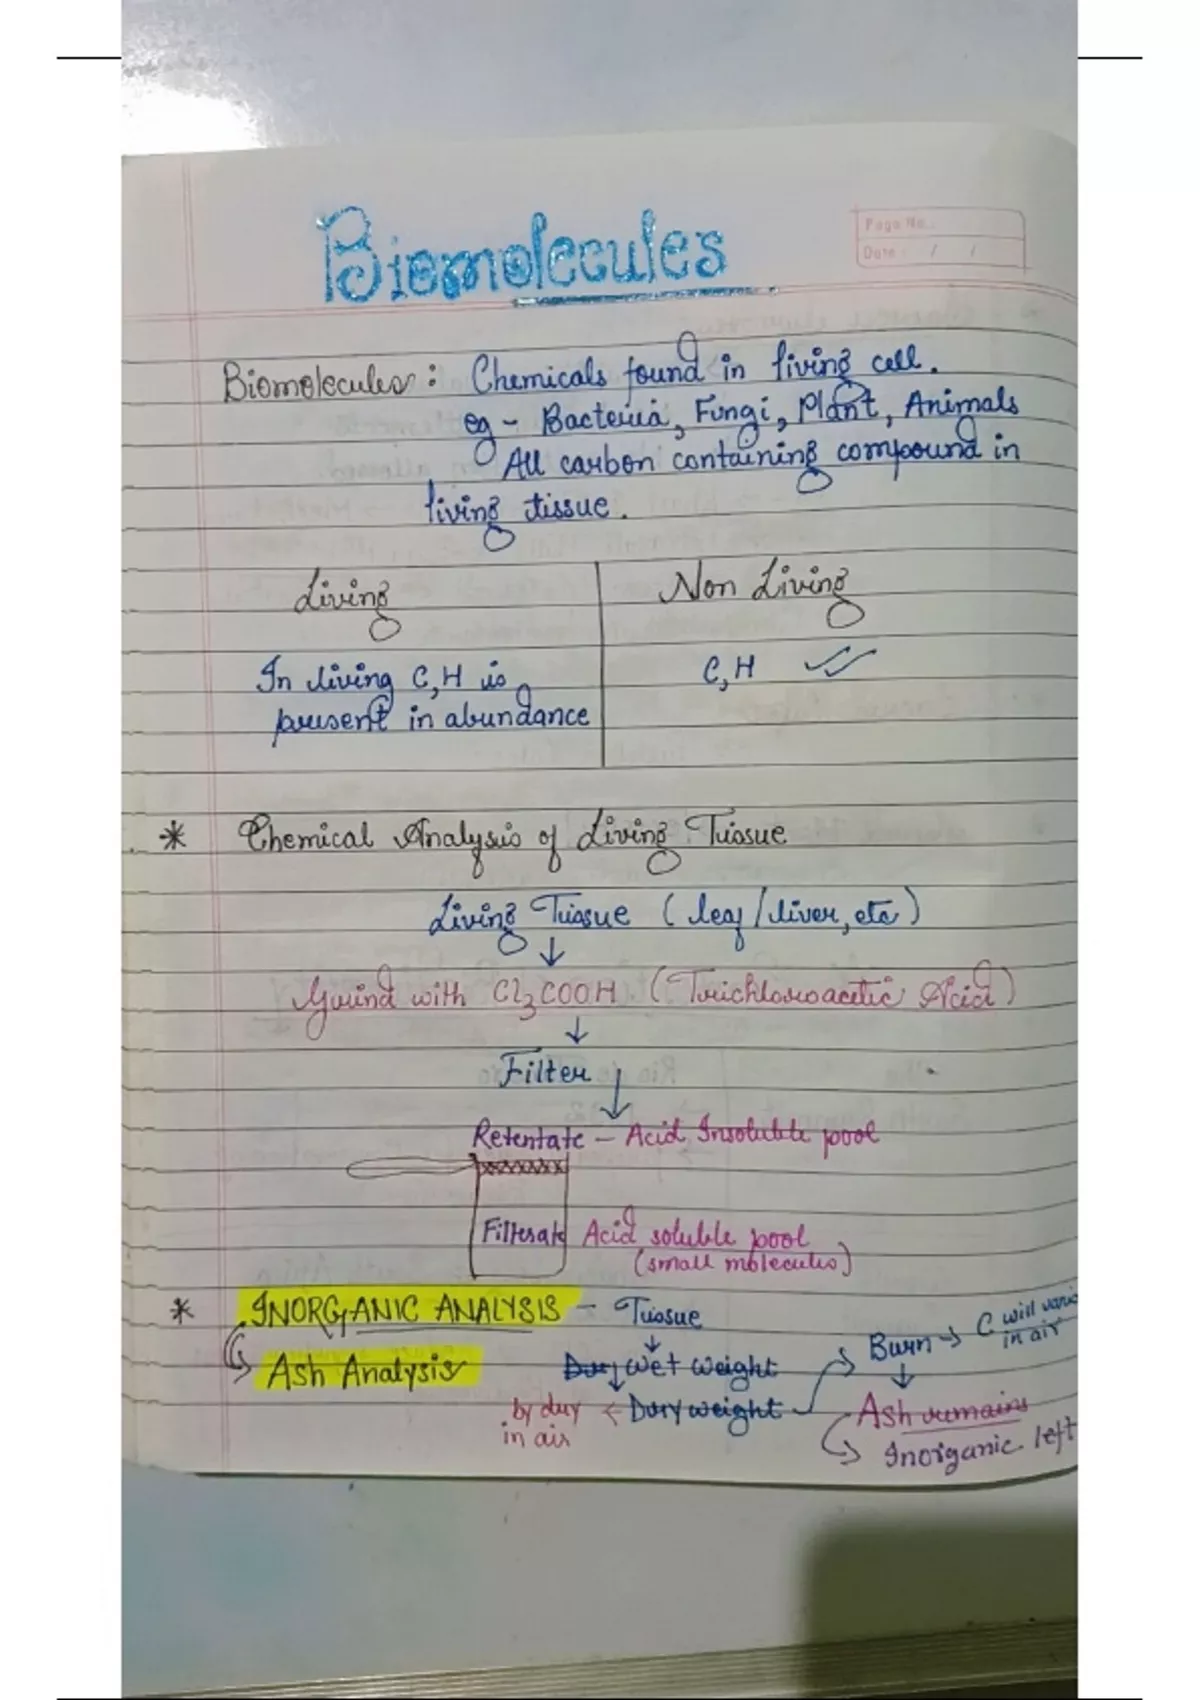 Biomolecules
Page No.
Date : / /
Biomolecules : Chemicals found in living cell.
eg - Bacteria, Fungi, Plant, Animals
All carbon containing compound in
living tissue.
Living
Non Living
In living C,H is
present in abundance
C,H
* Chemical Analysis of Living Tissue
Living Tissue (leaf/liver, etc)
↓
Grind with Cl3COOH. (Trichloroacetic Acid)
↓
Filter
↓
Retentate - Acid Insoluble pool
Filterate Acid soluble pool
(small molecules)
* INORGANIC ANALYSIS - Tissue
↓
Ash Analysis
Wet weight
↓
by dry ← Dry weight
in air
Burn → C will
in air
↓
Ash remains
Inorganic left